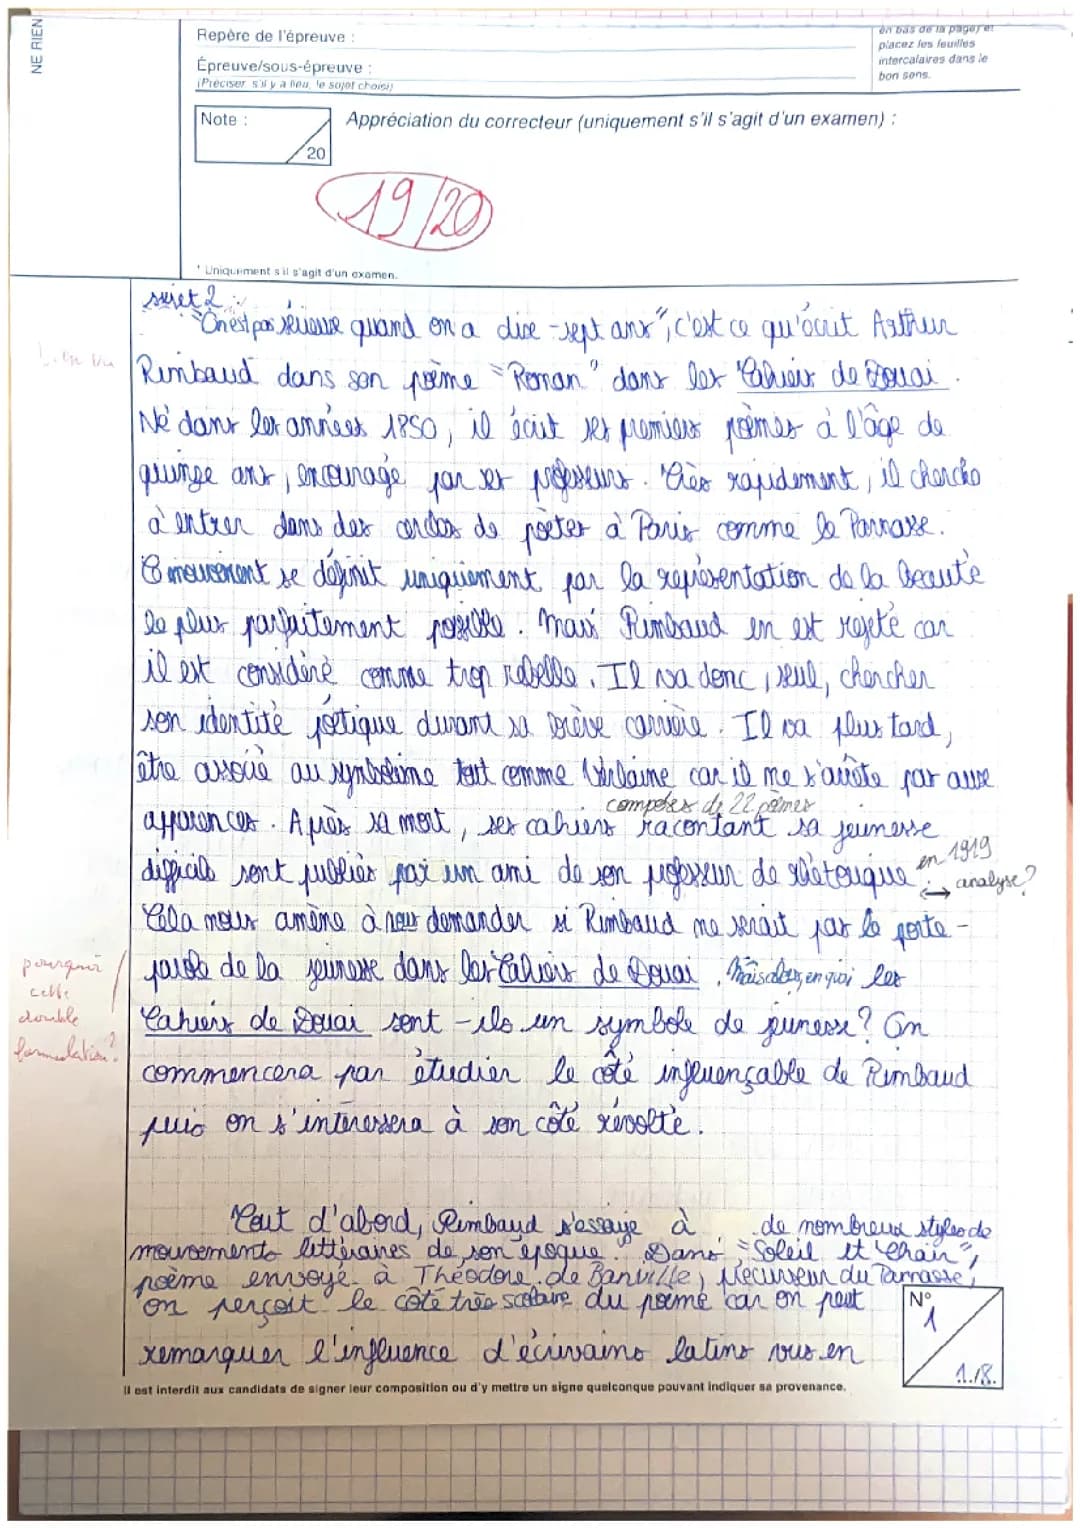 NE RIEN
Repère de l'épreuve :
Épreuve/sous-épreuve :
(Préciser s'il y a lieu, le sujet choisi)
en bas de la page) et
placez les feuilles
intercalaires dans le
bon sens.
Note :
20
Appréciation du correcteur (uniquement s'il s'agit d'un examen) :
19/20
* Uniquement s'il s'agit d'un examen.
sujet 2 :
"On est pas sérieux quand on a dix-sept ans", c'est ce qu'écrit Arthur
Rimbaud dans son poème "Roman" dans les Cahiers de Douai.
Né dans les années 1850, il écrit ses premiers poèmes à l'âge de
quinze ans, encouragé par ses professeurs. Très rapidement, il cherche
à entrer dans des cercles de poètes à Paris comme le Parnasse.
Ce mouvement se définit uniquement par la représentation de la beauté
le plus parfaitement possible. Mais Rimbaud en est rejeté car
il est considéré comme trop rebelle. Il va donc, seul, chercher
son identité poétique durant sa brève carrière. Il va plus tard,
être associé au symbolisme tout comme Verlaine car il ne s'arrête pas aux
composés de 22 poèmes
apparences. Après sa mort, ses cahiers racontant sa jeunesse
difficile sont publiés par un ami de son professeur de rhétorique en 1919.
→ analyse?
Cela nous amène à nous demander si Rimbaud ne serait pas le porte-
parole de la jeunesse dans les Cahiers de Douai. Mais alors, en quoi les
pourquoi
cette
double
formulation?
Cahiers de Douai sont-ils un symbole de jeunesse? On
commencera par étudier le côté influençable de Rimbaud
puis on s'intéressera à son côté révolté.
Tout d'abord, Rimbaud s'essaye à de nombreux styles de
mouvements littéraires de son époque. Dans "Soleil et Chair",
poème envoyé à Théodore de Banville, précurseur du Parnasse,
on perçoit le côté très scolaire du poème car on peut
remarquer l'influence d'écrivains latins vus en
N°
1
1./8.
Il est interdit aux candidats de signer leur composition ou d'y mettre un signe quelconque pouvant indiquer sa provenance.